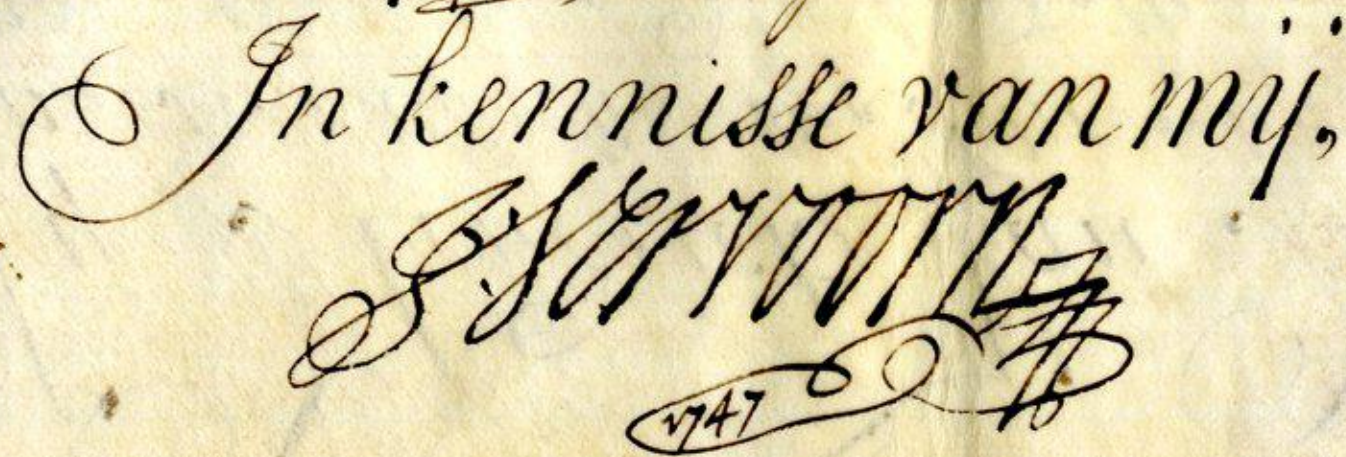 In kennisse van mij.
J: Vervoorn
1747